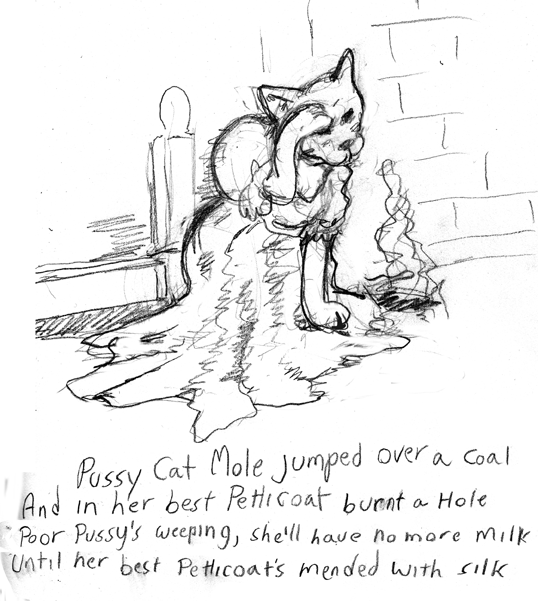 Pussy Cat Mole jumped over a coal
And in her best Petticoat burnt a Hole
Poor Pussy's weeping, she'll have no more milk
Until her best Petticoat's mended with silk